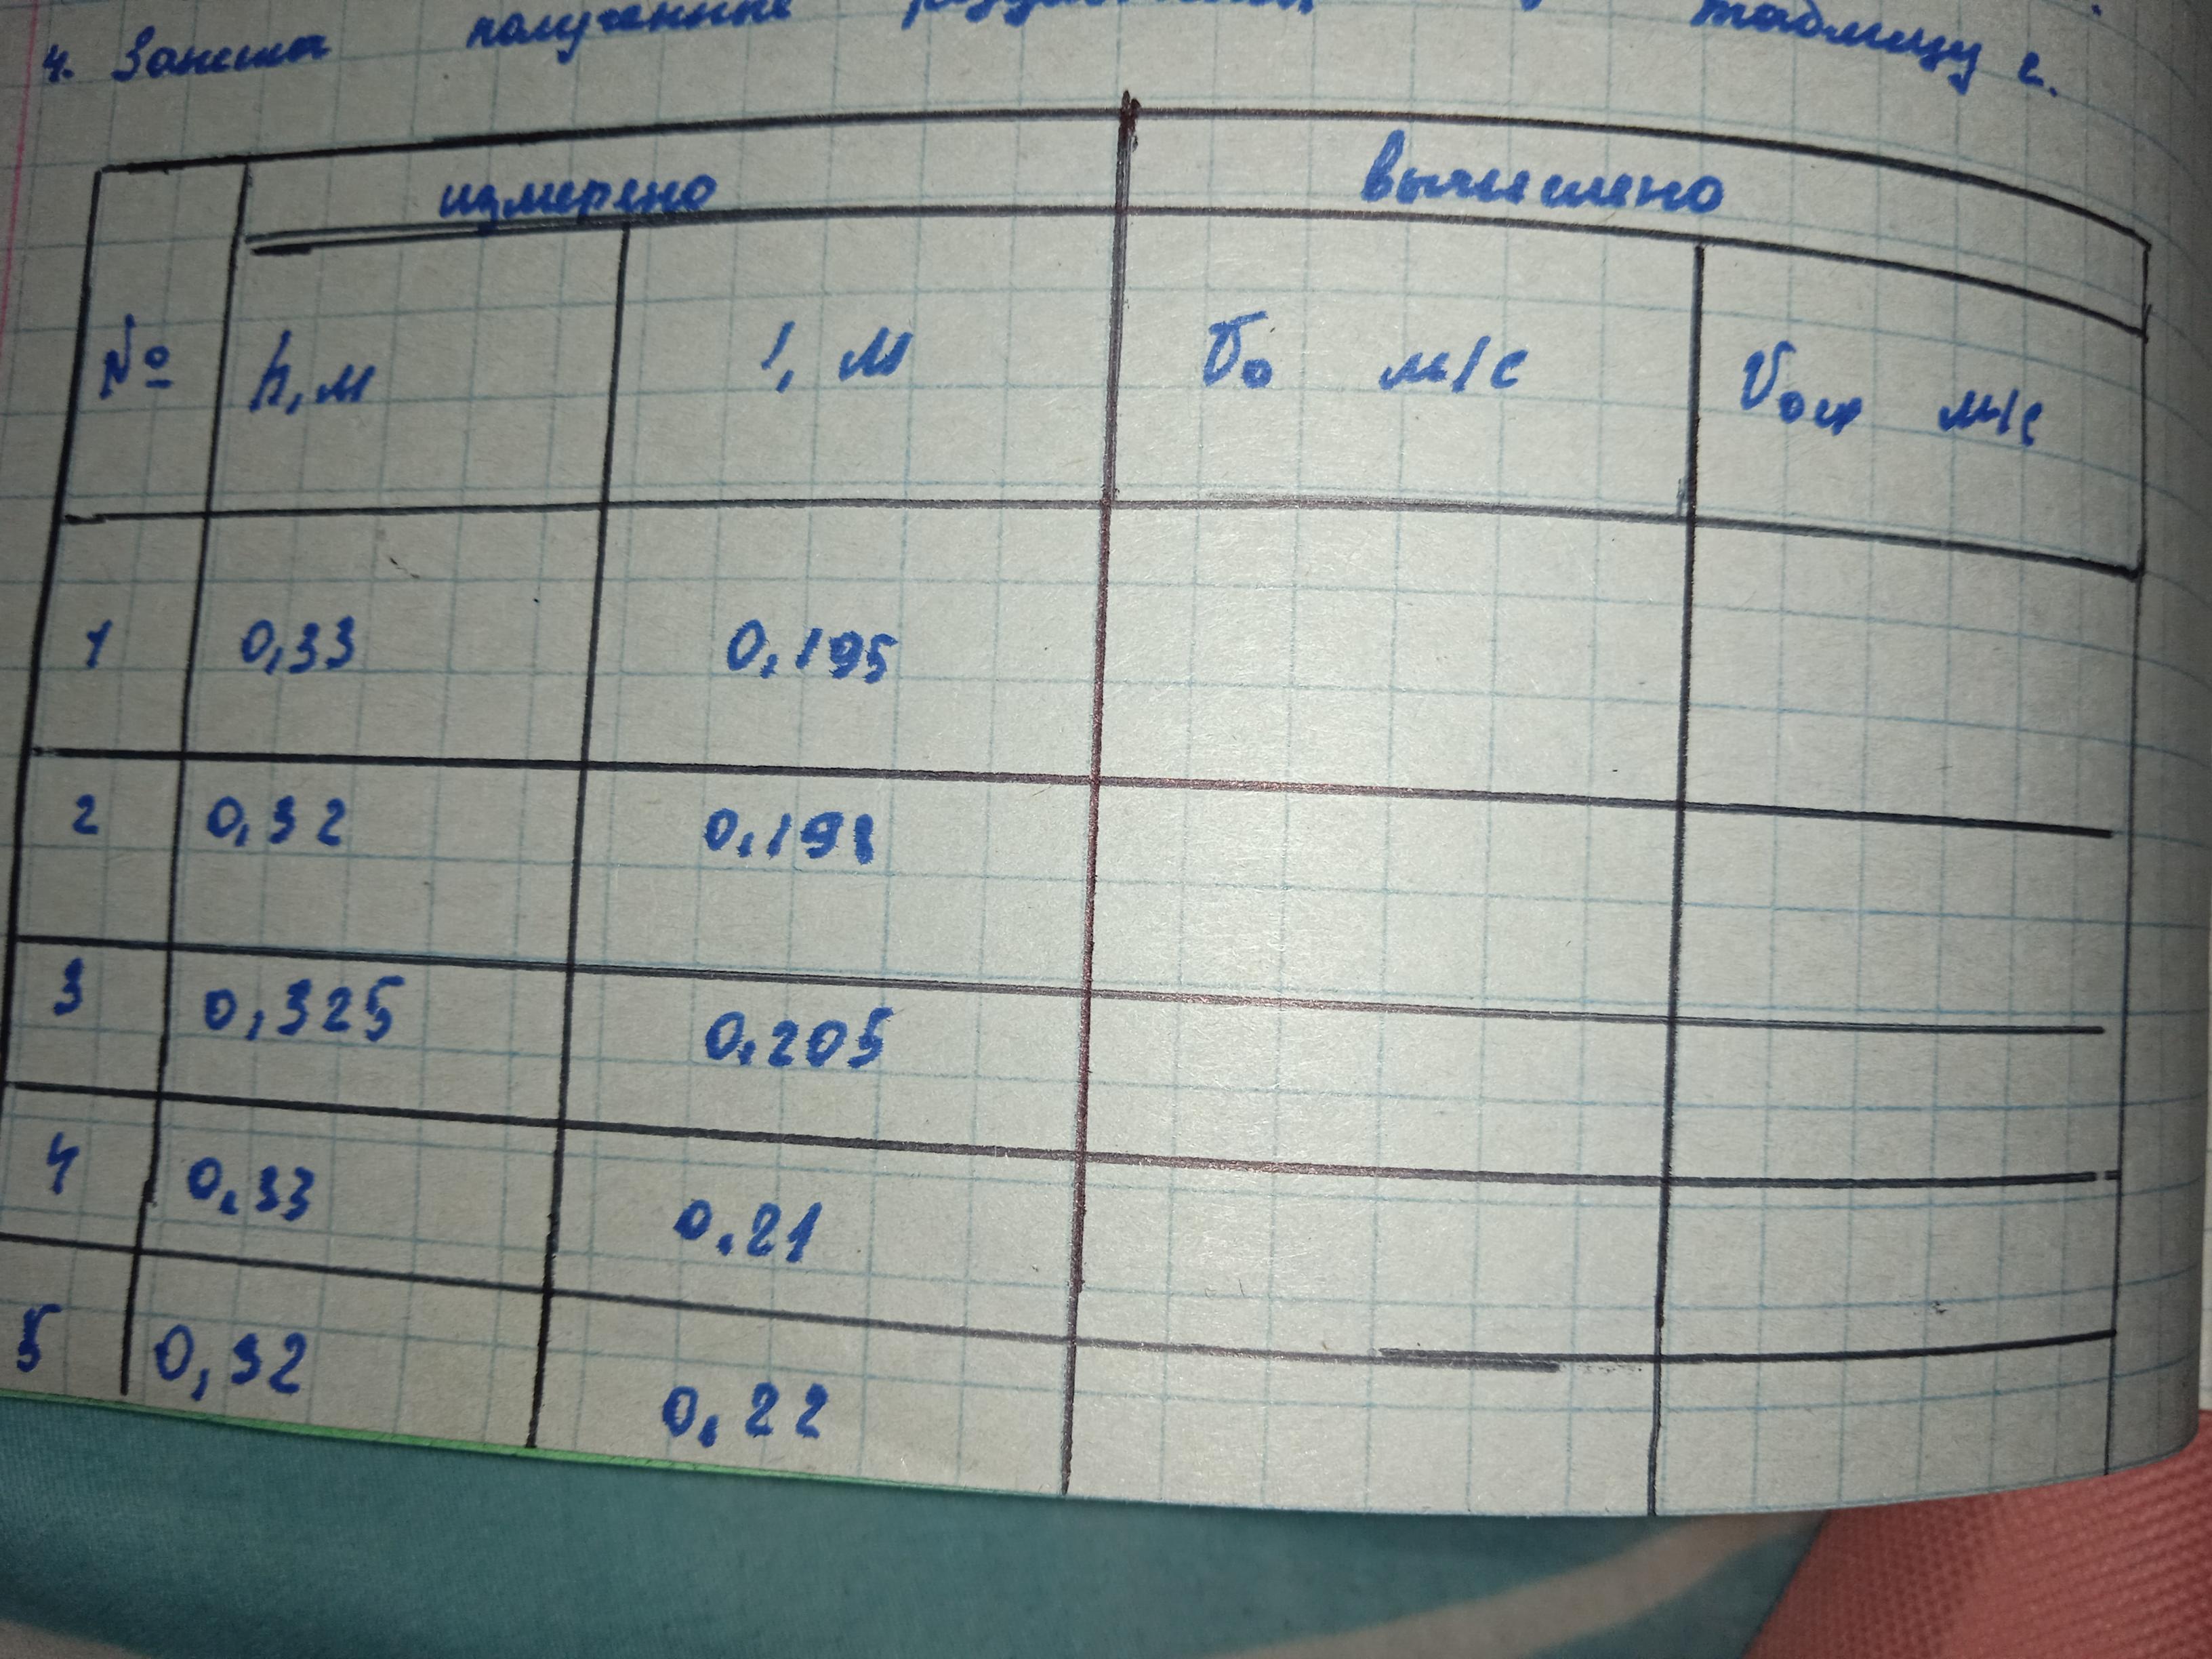 4. Запись полученные таблицу 2.
измерено вычислено
№ h, м l, м V₀ м/с V₀ср м/с
1 0,33 0,195
2 0,32 0,198
3 0,325 0,205
4 0,33 0,21
5 0,32 0,22